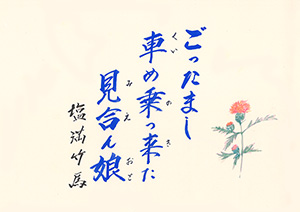 ごったまし
車め乗っ来た
くい のき
見合ん娘
みえ おと
塩満竹馬